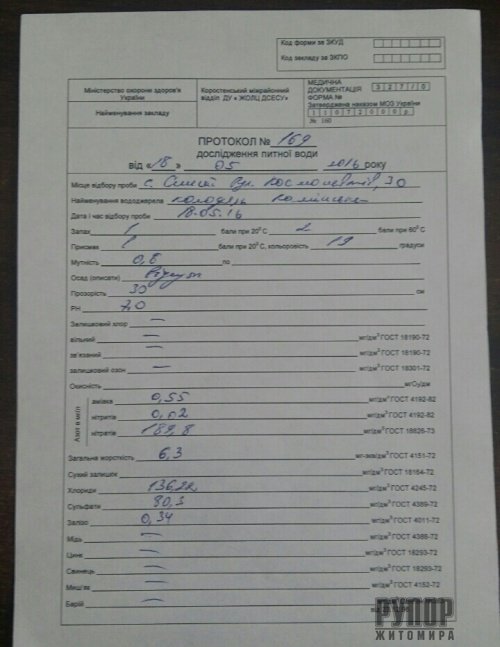 Код форми за ЗКУД
Код закладу за ЗКПО
Міністерство охорони здоров'я України
Найменування закладу
Коростенський міжрайонний відділ ДУ « ЖОЛЦ ДСЕСУ»
МЕДИЧНА ДОКУМЕНТАЦІЯ ФОРМА № 327/0
Затверджена наказом МОЗ України
11072000р
№ 160
ПРОТОКОЛ № 169
дослідження питної води
від «18» 05 2016 року
Місце відбору проби с. вул. Космонавтів, 30
Найменування вододжерела колодязь
Дата і час відбору проби 18.05.16
Запах 1 бали при 20°С 2 бали при 60°С
Присмак 1 бали при 20°С, кольоровість 19 градуси
Мутність 0,8 по
Осад (описати) відсут
Прозорість 30 см
РН 7,0
Залишковий хлор —
вільний — мг/дм³ ГОСТ 18190-72
зв'язаний — мг/дм³ ГОСТ 18190-72
залишковий озон — мг/дм³ ГОСТ 18301-72
Окисність мгО₂/дм
Азот в мг/л
аміака 0,55 мг/дм³ ГОСТ 4192-82
нітритів 0,02 мг/дм³ ГОСТ 4192-82
нітратів 189,8 мг/дм³ ГОСТ 18826-73
Загальна жорсткість 6,3 мг-экв/дм³ ГОСТ 4151-72
Сухий залишок мг/дм³ ГОСТ 18164-72
Хлориди 136,22 мг/дм³ ГОСТ 4245-72
Сульфати 80,3 мг/дм³ ГОСТ 4389-72
Залізо 0,34 мг/дм³ ГОСТ 4011-72
Мідь — мг/дм³ ГОСТ 4388-72
Цинк — мг/дм³ ГОСТ 18293-72
Свинець — мг/дм³ ГОСТ 18293-72
Миш'як — мг/дм³ ГОСТ 4152-72
Барій —
РУПОР
ЖИТОМИРА